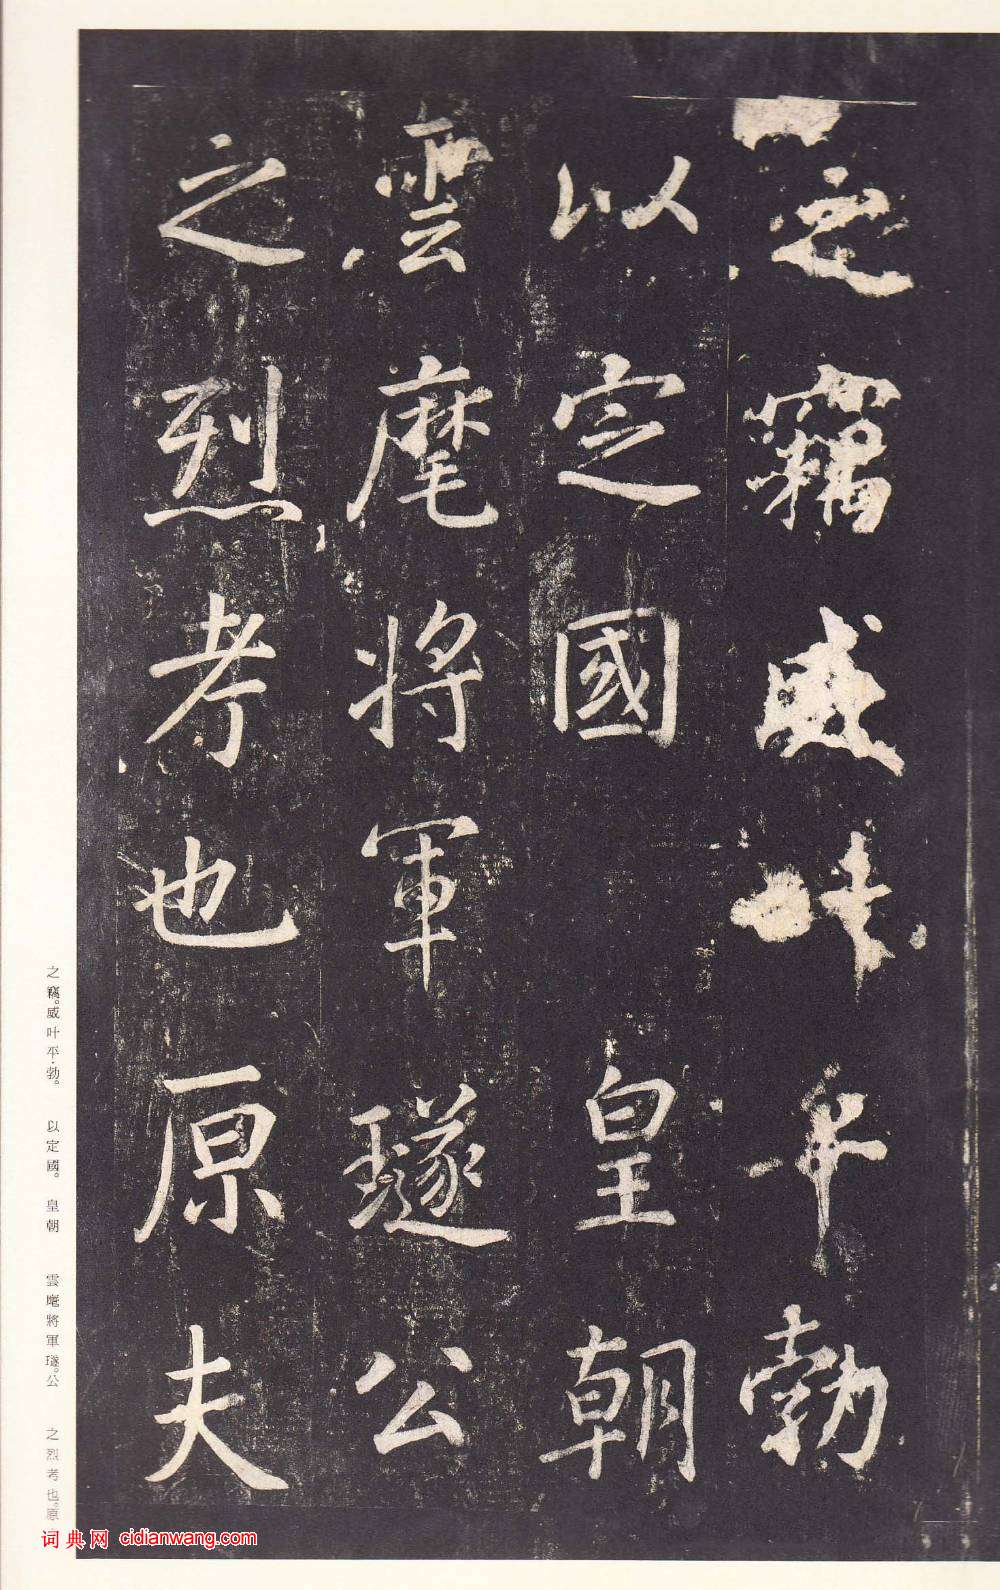 之竊威叶平勃
以定國皇朝
雲麾將軍璲公
之烈考也原夫
之竊。威叶平·勃。 以定國。 皇朝 雲麾將軍璲。公 之烈考也。原
词典网 cidianwang.com